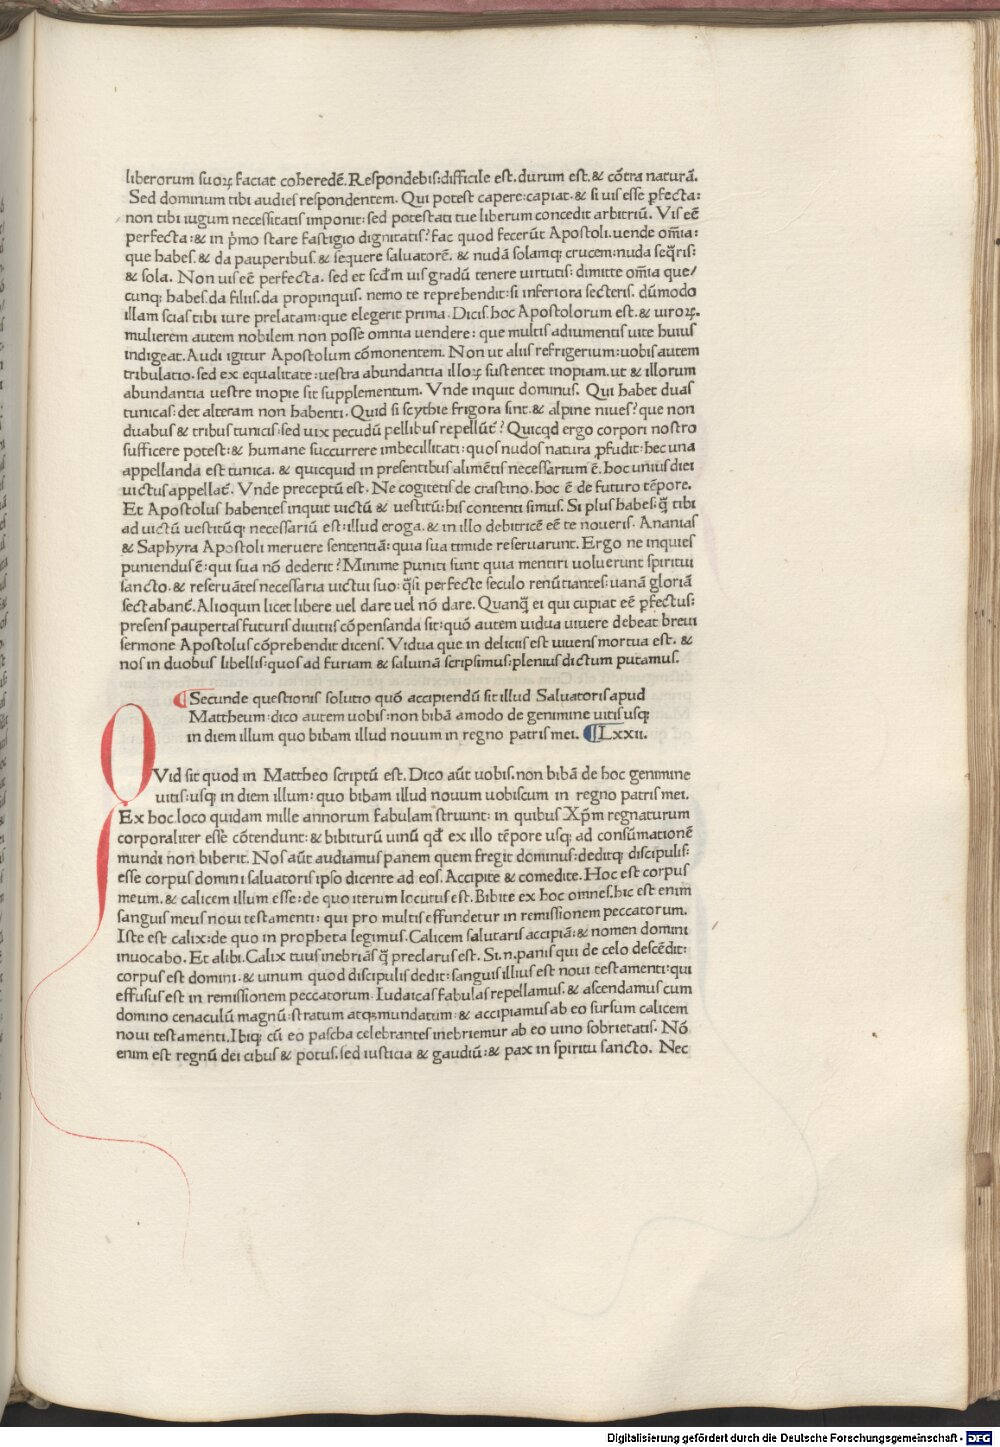 liberorum suoꝝ faciat coheredē. Respondebis: difficile est. durum est. & cōtra naturā.
Sed dominum tibi audies respondentem. Qui potest capere: capiat. & si uis esse ꝑfecta:
non tibi iugum necessitatis imponit: sed potestati tue liberum concedit arbitriū. Vis eē
perfecta: & in pͥmo stare fastigio dignitatis? fac quod fecerūt Apostoli. uende om̄ia:
que habes. & da pauperibus. & sequere saluatorē. & nudā solamq; crucem: nuda seq̄ris:
& sola. Non uis eē perfecta. sed et scd̄m uis gradū tenere uirtutis: dimitte om̄ia que/
cunq; habes. da filiis. da propinquis. nemo te reprehendit: si inferiora secteris. dūmodo
illam scias tibi iure prelatam: que elegerit prima. Dicis. hoc Apostolorum est. & uiroꝝ.
mulierem autem nobilem non posse omnia uendere: que multis adiumentis uite huius
indigeat. Audi igitur Apostolum cōmonentem. Non ut aliis refrigerium: uobis autem
tribulatio. sed ex equalitate: uestra abundantia illoꝝ sustentet inopiam. ut & illorum
abundantia uestre inopie sit supplementum. Vnde inquit dominus. Qui habet duas
tunicas: det alteram non habenti. Quid si scythie frigora sint. & alpine niues? que non
duabus & tribus tunicis: sed uix pecudū pellibus repellūt᷑? Quicq̇d ergo corpori nostro
sufficere potest: & humane succurrere imbecillitati: quos nudos natura ꝓfudit: hec una
appellanda est tunica. & quicquid in presentibus alimētis necessarium ē. hoc unius diei
uictus appellat᷑. Vnde preceptū est. Ne cogitetis de crastino. hoc ē de futuro tēpore.
Et Apostolus habentes inquit uictū & uestitū: his contenti simus. Si plus habes: q̄ tibi
ad uictū uestitūq; necessariū est: illud eroga. & in illo debitricē eē te noueris. Ananias
& Saphyra Apostoli meruere sententiā: quia sua timide reseruarunt. Ergo ne inquies
puniendus ē: qui sua nō dederit? Minime puniti sunt quia mentiri uoluerunt spiritui
sancto. & reseruātes necessaria uictui suo: q̄si perfecte seculo renūtiantes: uanā gloriā
sectabant᷑. Alioquin licet libere uel dare uel nō dare. Quanq̄ ei qui cupiat eē ꝑfectus:
presens paupertas futuris diuitiis cōpensanda sit: quō autem uidua uiuere debeat breui
sermone Apostolus cōprehendit dicens. Vidua que in deliciis est uiuens mortua est. &
nos in duobus libellis: quos ad furiam & saluinā scripsimus: plenius dictum putamus.
¶Secunde questionis solutio quō accipiendū sit illud Saluatoris apud
Mattheum: dico autem uobis: non bibā amodo de genimine uitis usq;
in diem illum quo bibam illud nouum in regno patris mei. ¶Lxxii.
QVid sit quod in Mattheo scriptū est. Dico aūt uobis. non bibā de hoc genimine
uitis: usq; in diem illum: quo bibam illud nouum uobiscum in regno patris mei.
Ex hoc loco quidam mille annorum fabulam struunt: in quibus Xp̄m regnaturum
corporaliter esse cōtendunt: & bibiturū uinū qd̄ ex illo tēpore usq; ad consūmationē
mundi non biberit. Nos aūt audiamus panem quem fregit dominus: deditq; discipulis:
esse corpus domini saluatoris ipso dicente ad eos. Accipite & comedite. Hoc est corpus
meum. & calicem illum esse: de quo iterum locutus est. Bibite ex hoc omnes. hic est enim
sanguis meus noui testamenti: qui pro multis effundetur in remissionem peccatorum.
Iste est calix: de quo in propheta legimus. Calicem salutaris accipiā: & nomen domini
inuocabo. Et alibi. Calix tuus inebriās q̄ preclarus est. Si. n. panis qui de celo descēdit:
corpus est domini. & uinum quod discipulis dedit: sanguis illius est noui testamenti: qui
effusus est in remissionem peccatorum. Iudaicas fabulas repellamus. & ascendamus cum
domino cenaculū magnū: stratum atq; mundatum: & accipiamus ab eo sursum calicem
noui testamenti. Ibiq; cū eo pascha celebrantes inebriemur ab eo uino sobrietatis. Nō
enim est regnū dei cibus & potus. sed iusticia & gaudiū: & pax in spiritu sancto. Nec
Digitalisierung gefördert durch die Deutsche Forschungsgemeinschaft - DFG